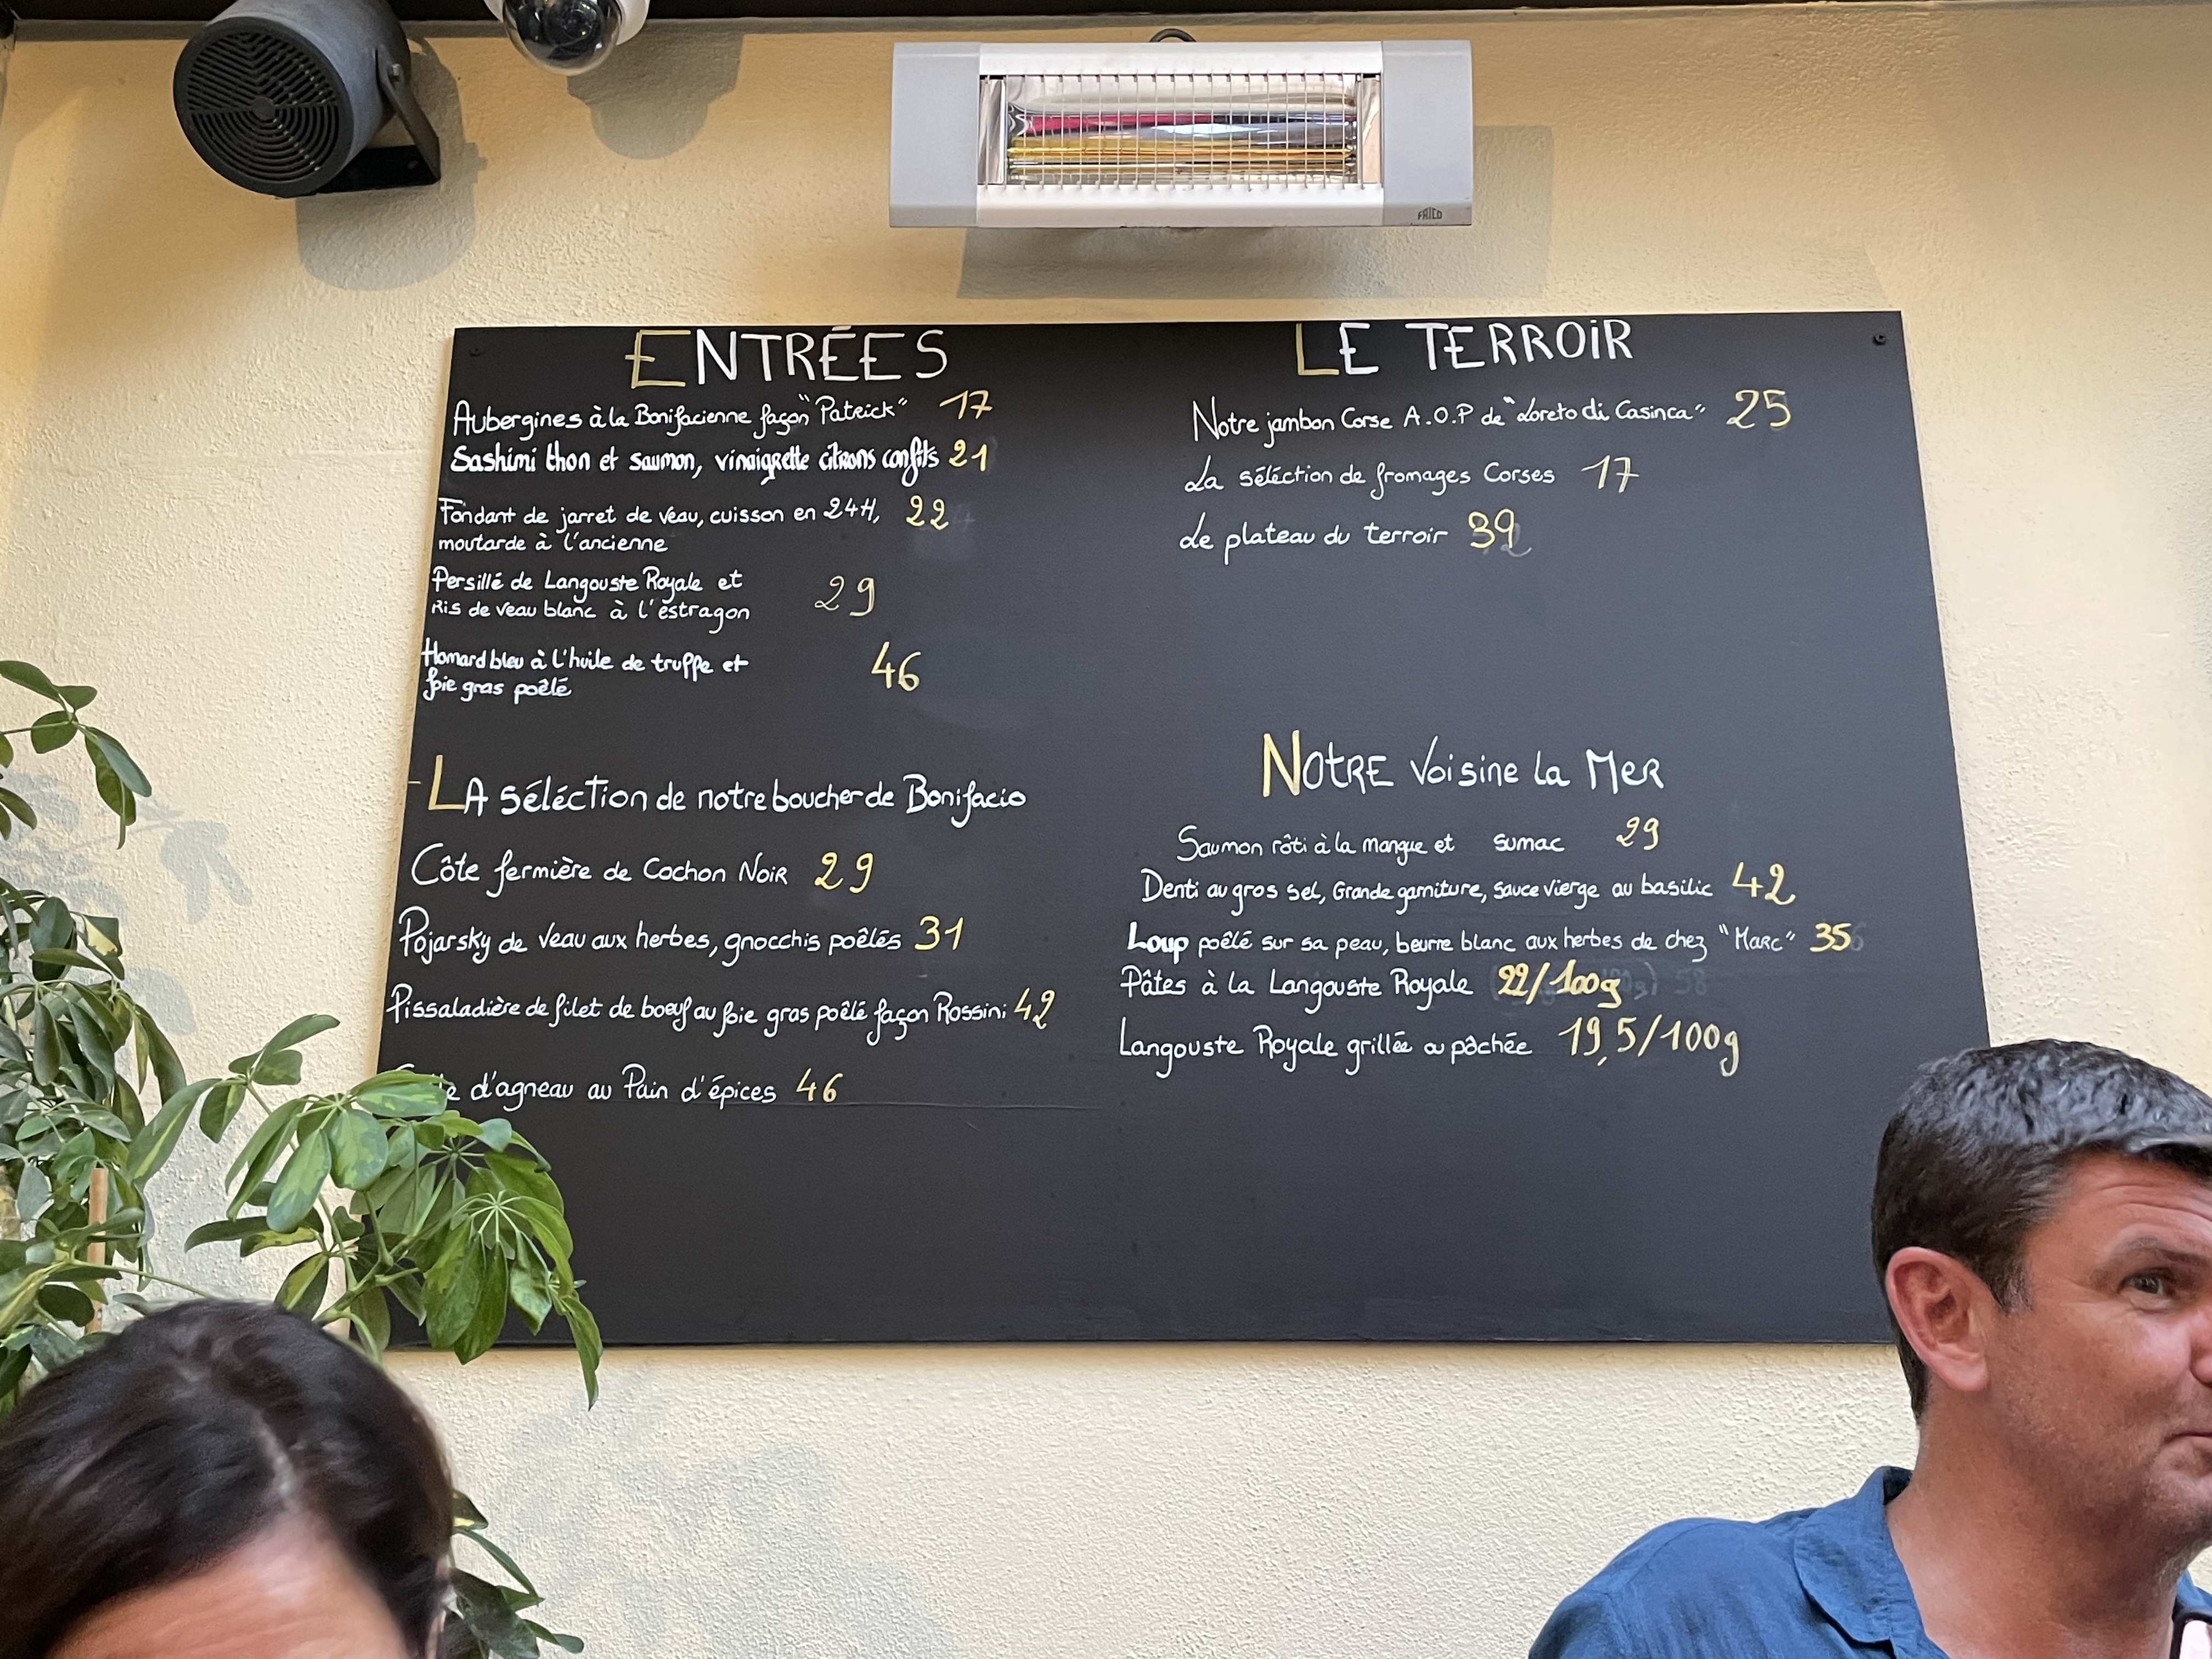 FRICO
ENTRÉES
Aubergines à la Bonifacienne façon "Patrick" 17
Sashimi thon et saumon, vinaigrette citrons confits 21
Fondant de jarret de veau, cuisson en 24H, 22
moutarde à l'ancienne
Persillé de Langouste Royale et 29
Ris de veau blanc à l'estragon
Homard bleu à l'huile de truffe et 46
foie gras poêlé
LA séléction de notre boucher de Bonifacio
Côte fermière de Cochon Noir 29
Pojarsky de veau aux herbes, gnocchis poêlés 31
Pissaladière de filet de boeuf au foie gras poêlé façon Rossini 42
d'agneau au Pain d'épices 46
LE TERROIR
Notre jambon Corse A.O.P de "Loreto di Casinca" 25
La séléction de fromages Corses 17
Le plateau du terroir 39
NOTRE Voisine La MER
Saumon rôti à la mangue et sumac 29
Denti au gros sel, Grande garniture, sauce vierge au basilic 42
Loup poêlé sur sa peau, beurre blanc aux herbes de chez "Marc" 35
Pâtes à la Langouste Royale 22/100g
Langouste Royale grillée ou pôchée 19,5/100g